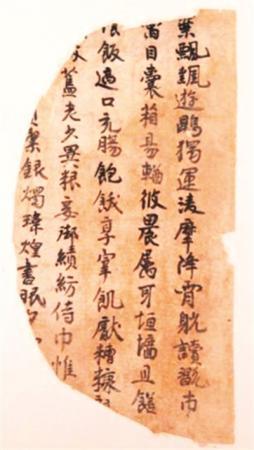 葉飄颻遊鵾獨運淩摩降霄躭讀翫市
寓目囊箱易輶攸畏属耳垣墻且饍
飯適口充腸飽飫享宰飢猒糟糠
舊老少異粮妾御績紡侍巾惟
潔銀燭煒煌晝眠夕